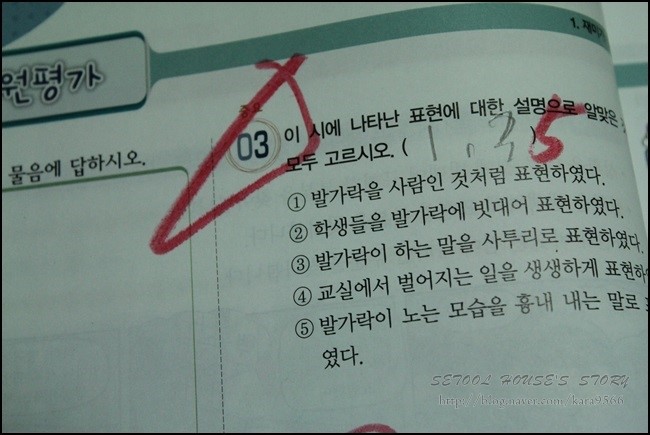 1. 재미
원평가
물음에 답하시오.
중요
03 이 시에 나타난 표현에 대한 설명으로 알맞은
모두 고르시오. ( 1, 3 5 )
① 발가락을 사람인 것처럼 표현하였다.
② 학생들을 발가락에 빗대어 표현하였다.
③ 발가락이 하는 말을 사투리로 표현하였다.
④ 교실에서 벌어지는 일을 생생하게 표현하
⑤ 발가락이 노는 모습을 흉내 내는 말로
였다.
SETOOL HOUSE'S STORY
http://blog.naver.com/kara9506